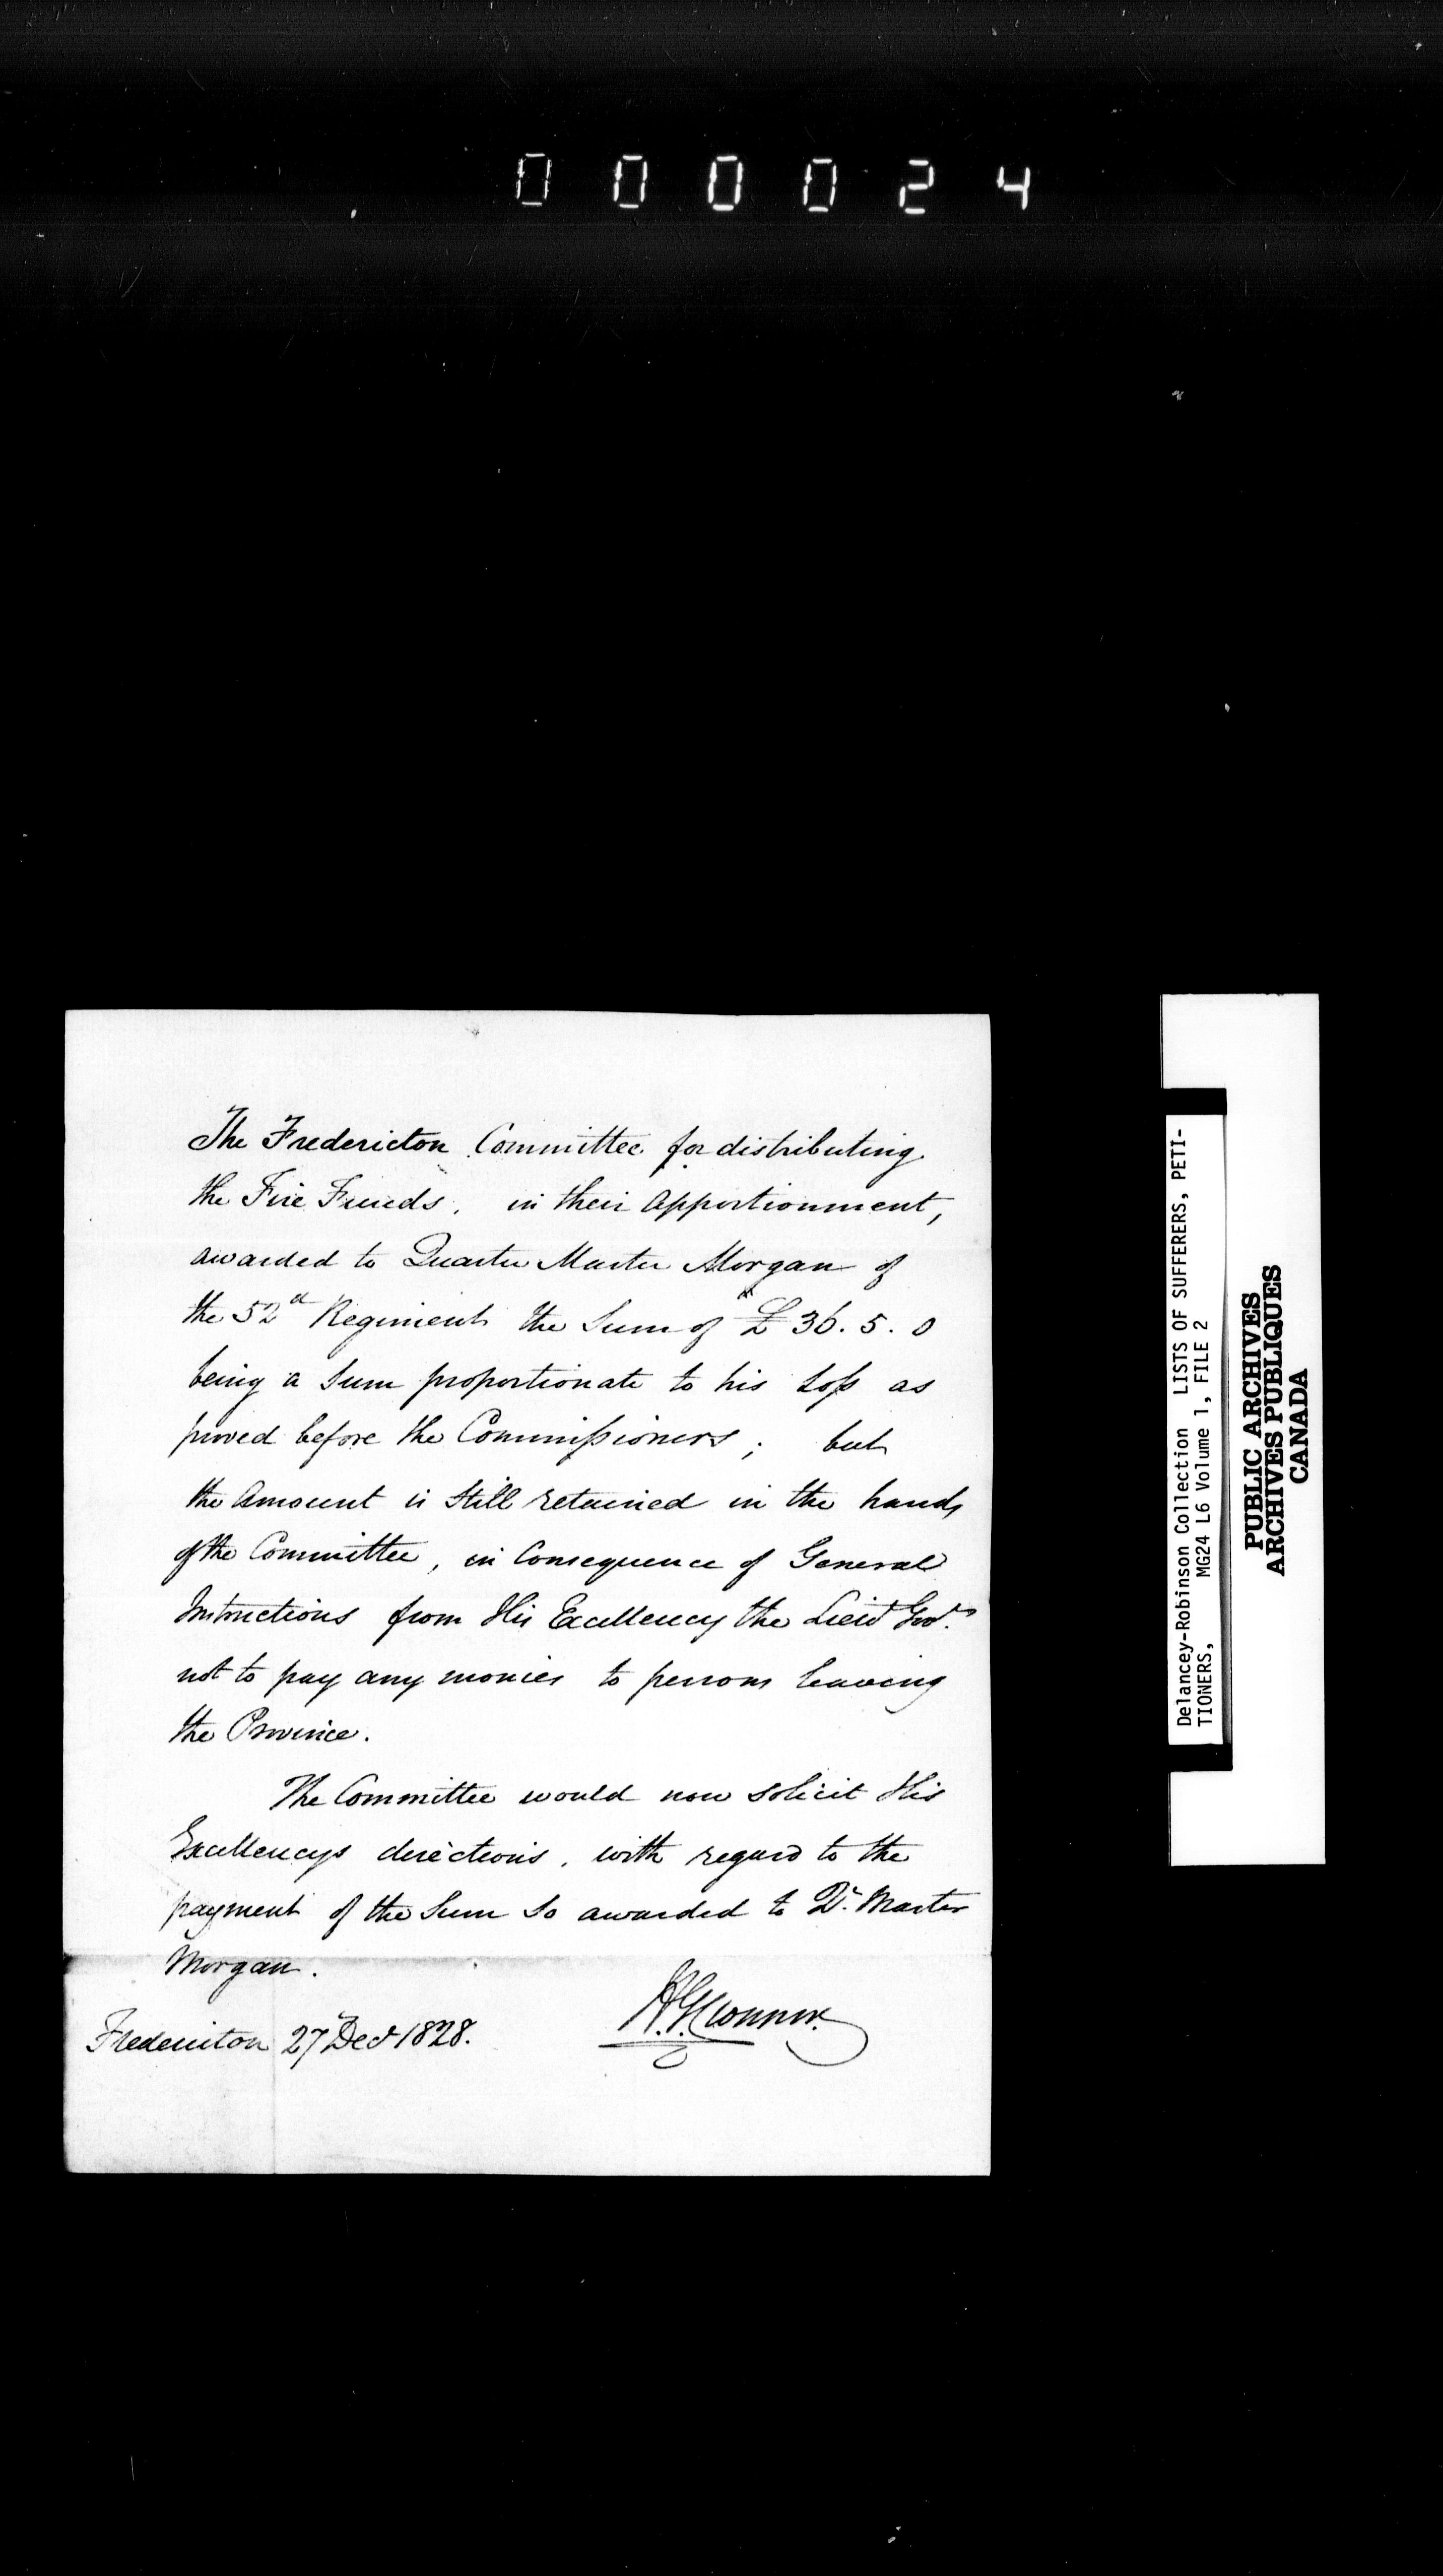 000024
The Fredericton Committee for distributing
the Fire Funds, in their apportionment,
awarded to Quarter Master Morgan of
the 52d Regiment the Sum of £ 36. 5. 0
being a Sum proportionate to his Loſs as
proved before the Commiſsioners; but
the Amount is Still retained in the hands
of the Committee, in Consequence of General
Instructions from His Excellency the Lieut Govr.
not to pay any monies to persons leaving
the Province.
The Committee would now solicit His
Excellencys directions, with regard to the
payment of the Sum So awarded to Qr. Master
Morgan.
Fredericton 27 Decr 1828.
Delancey-Robinson Collection LISTS OF SUFFERERS, PETI-
TIONERS, MG24 L6 Volume 1, FILE 2
PUBLIC ARCHIVES
ARCHIVES PUBLIQUES
CANADA